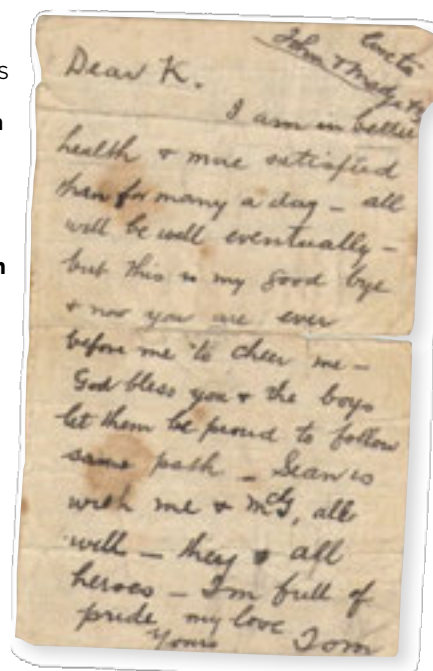 love to
John & Madge &c
Dear K.
I am in better
health & more satisfied
than for many a day – all
will be well eventually –
but this is my good bye
& now you are ever
before me to cheer me –
God bless you & the boys
let them be proud to follow
same path – Sean is
with me & McG, all
well – they all
heroes – I'm full of
pride my love
Yours Tom